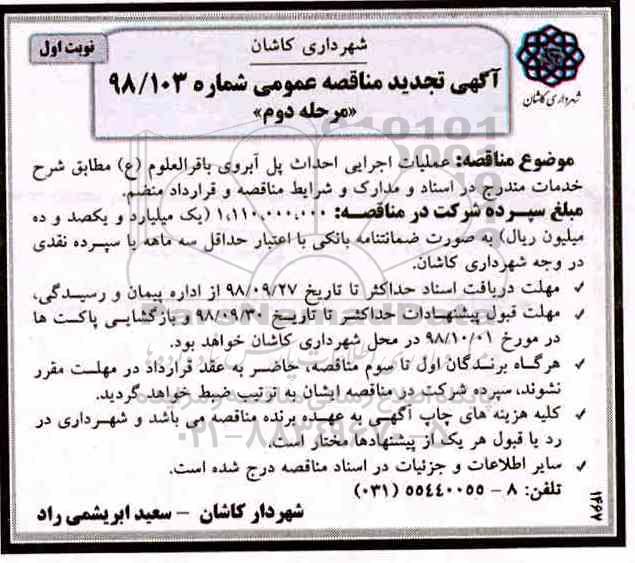 نوبت اول
شهرداری کاشان
آگهی تجدید مناقصه عمومی شماره ۹۸/۱۰۳
«مرحله دوم»
شهرداری کاشان
موضوع مناقصه: عملیات اجرایی احداث پل آبروی باقرالعلوم (ع) مطابق شرح
خدمات مندرج در اسناد و مدارک و شرایط مناقصه و قرارداد منضم.
مبلغ سپرده شرکت در مناقصه: ۱،۱۱۰،۰۰۰،۰۰۰ (یک میلیارد و یکصد و ده
میلیون ریال) به صورت ضمانتنامه بانکی با اعتبار حداقل سه ماهه یا سپرده نقدی
در وجه شهرداری کاشان.
✓ مهلت دریافت اسناد حداکثر تا تاریخ ۹۸/۰۹/۲۷ از اداره پیمان و رسیدگی،
✓ مهلت قبول پیشنهادات حداکثر تا تاریخ ۹۸/۰۹/۳۰ و بازگشایی پاکت ها
در مورخ ۹۸/۱۰/۰۱ در محل شهرداری کاشان خواهد بود.
✓ هرگاه برندگان اول تا سوم مناقصه، حاضر به عقد قرارداد در مهلت مقرر
نشوند، سپرده شرکت در مناقصه ایشان به ترتیب ضبط خواهد گردید.
✓ کلیه هزینه های چاپ آگهی به عهده برنده مناقصه می باشد و شهرداری در
رد یا قبول هر یک از پیشنهادها مختار است.
✓ سایر اطلاعات و جزئیات در اسناد مناقصه درج شده است.
تلفن: ۸ - ۵۵۴۴۰۰۵۵ (۰۳۱)
شهردار کاشان - سعید ابریشمی راد
۱۴۶۷
ParsNamadData
۰۲۱-۸۸۳۴۹۶۷۰-۵